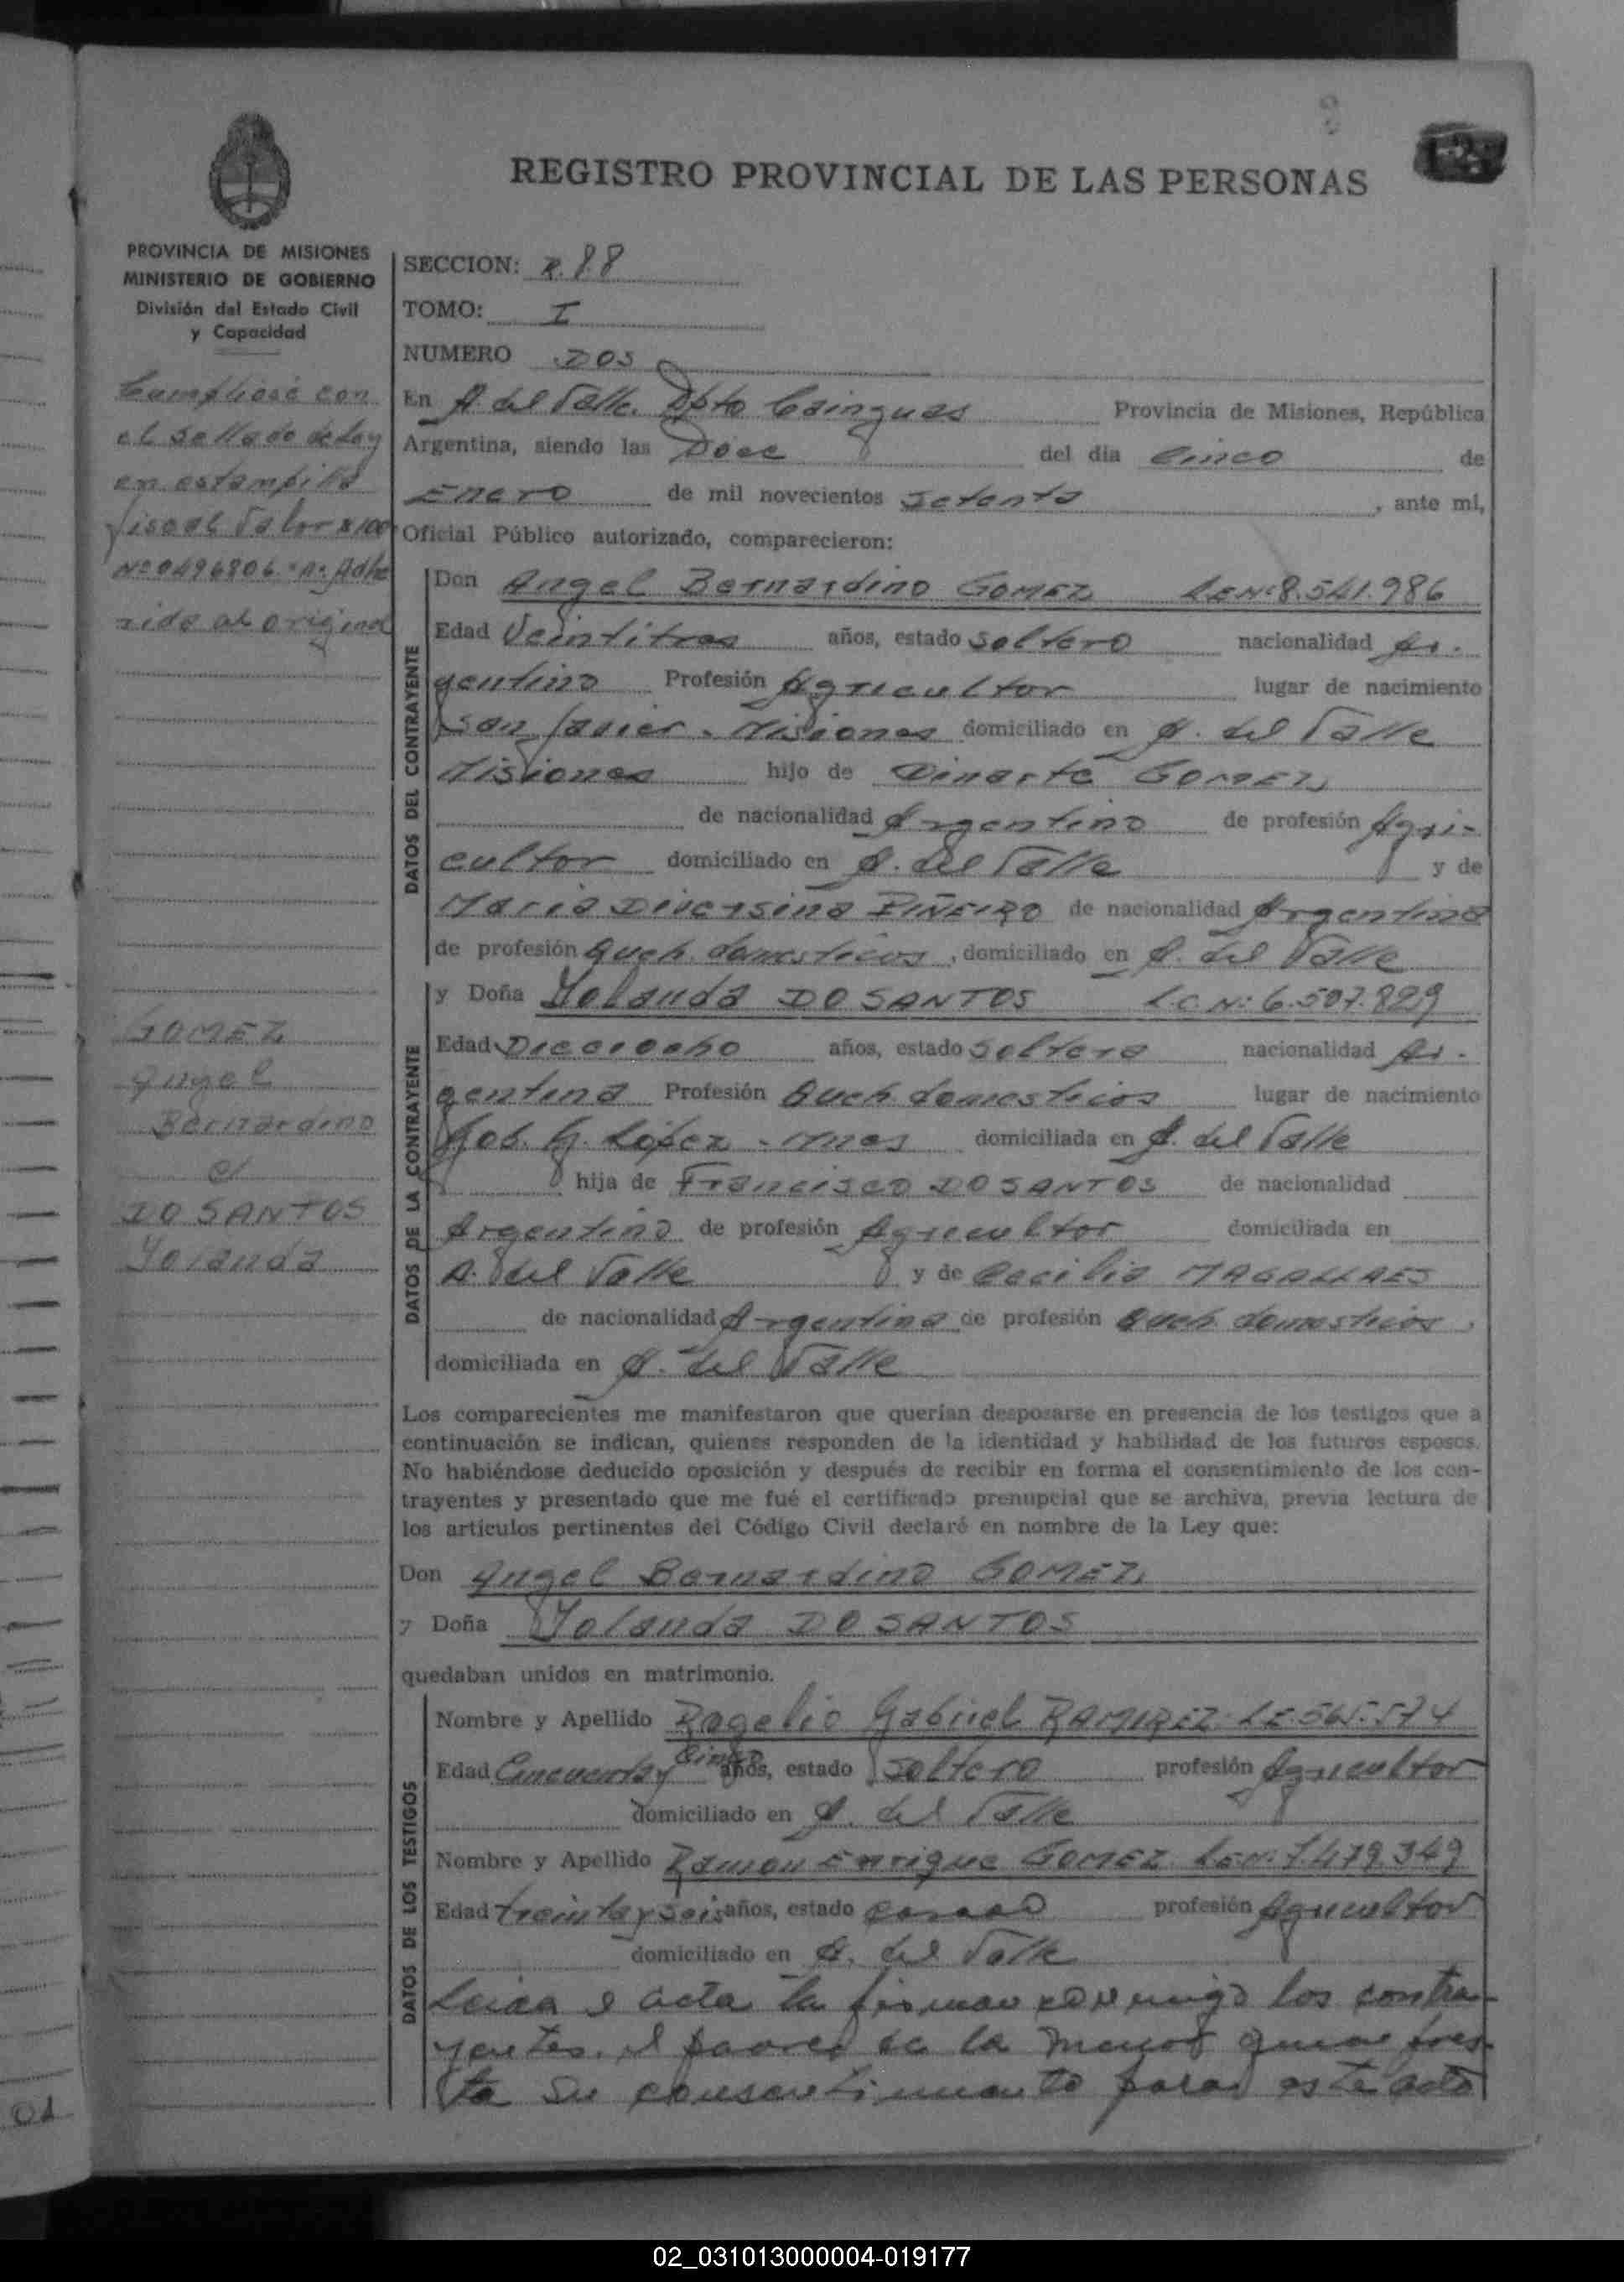 REGISTRO PROVINCIAL DE LAS PERSONAS
PROVINCIA DE MISIONES
MINISTERIO DE GOBIERNO
División del Estado Civil
y Capacidad
Cumpliose con
el sellado de Ley
en estampilla
fiscal Valor $ 100
Nº 0496806 "A" Adhe
rido al original
GOMEZ
Angel
Bernardino
c/
DO SANTOS
Yolanda
SECCION:
TOMO: I
NUMERO DOS
En A. del Valle. Dpto Cainguas Provincia de Misiones, República
Argentina, siendo las Doce del día Cinco de
Enero de mil novecientos Setenta, ante mí,
Oficial Público autorizado, comparecieron:
DATOS DEL CONTRAYENTE
Don Angel Bernardino GOMEZ L.E.Nº: 8.541.986
Edad Veintitres años, estado Soltero nacionalidad Ar-
gentino Profesión Agricultor lugar de nacimiento
San Javier - Misiones domiciliado en A. del Valle
Misiones hijo de Dinarte GOMEZ
de nacionalidad Argentino de profesión Agri-
cultor domiciliado en A. del Valle y de
Maria Diversina PIÑEIRO de nacionalidad Argentina
de profesión Queh. domesticos, domiciliado en A. del Valle
DATOS DE LA CONTRAYENTE
y Doña Yolanda DO SANTOS L.C.Nº: 6.507.829
Edad Dieciocho años, estado Soltera nacionalidad Ar-
gentina Profesión Queh. domesticos lugar de nacimiento
Gob. López - Mnes domiciliada en A. del Valle
hija de Francisco DO SANTOS de nacionalidad
Argentino de profesión Agricultor domiciliada en
A. del Valle y de Cecilia MAGALLAES
de nacionalidad Argentina de profesión Queh. domesticos,
domiciliada en A. del Valle
Los comparecientes me manifestaron que querían desposarse en presencia de los testigos que a
continuación se indican, quienes responden de la identidad y habilidad de los futuros esposos.
No habiéndose deducido oposición y después de recibir en forma el consentimiento de los con-
trayentes y presentado que me fué el certificado prenupcial que se archiva, previa lectura de
los artículos pertinentes del Código Civil declaré en nombre de la Ley que:
Don Angel Bernardino GOMEZ
y Doña Yolanda DO SANTOS
quedaban unidos en matrimonio.
DATOS DE LOS TESTIGOS
Nombre y Apellido Rogelio Gabriel RAMIREZ L.E. 565.574
Edad Cincuenta y Cinco años, estado Soltero profesión Agricultor
domiciliado en A. del Valle
Nombre y Apellido Ramon Enrique GOMEZ L.E.Nº: 7.479.349
Edad treinta y seis años, estado casado profesión Agricultor
domiciliado en A. del Valle
Leida e acta la firman conmigo los contra-
yentes, el padre de la menor quien pres-
ta su consentimiento para este acto
01
02_031013000004-019177